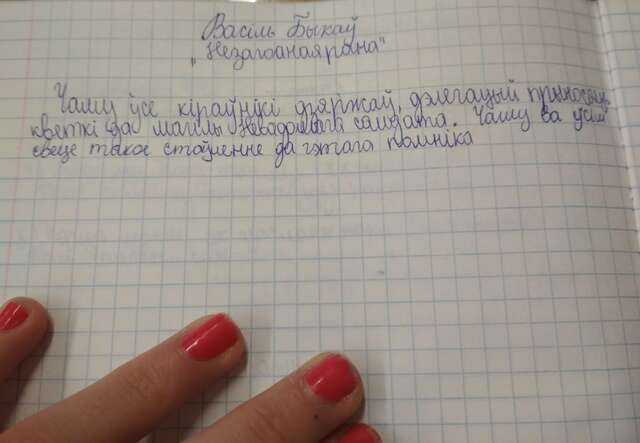 Васіль Быкаў
"Незагоаная рана"
Чаму ўсе кіраўнікі дзяржаў, дэлегацый прыносяць
кветкі да магілы Невядомага салдата. Чаму ва ўсім
свеце такое стаўленне да гэтага помніка